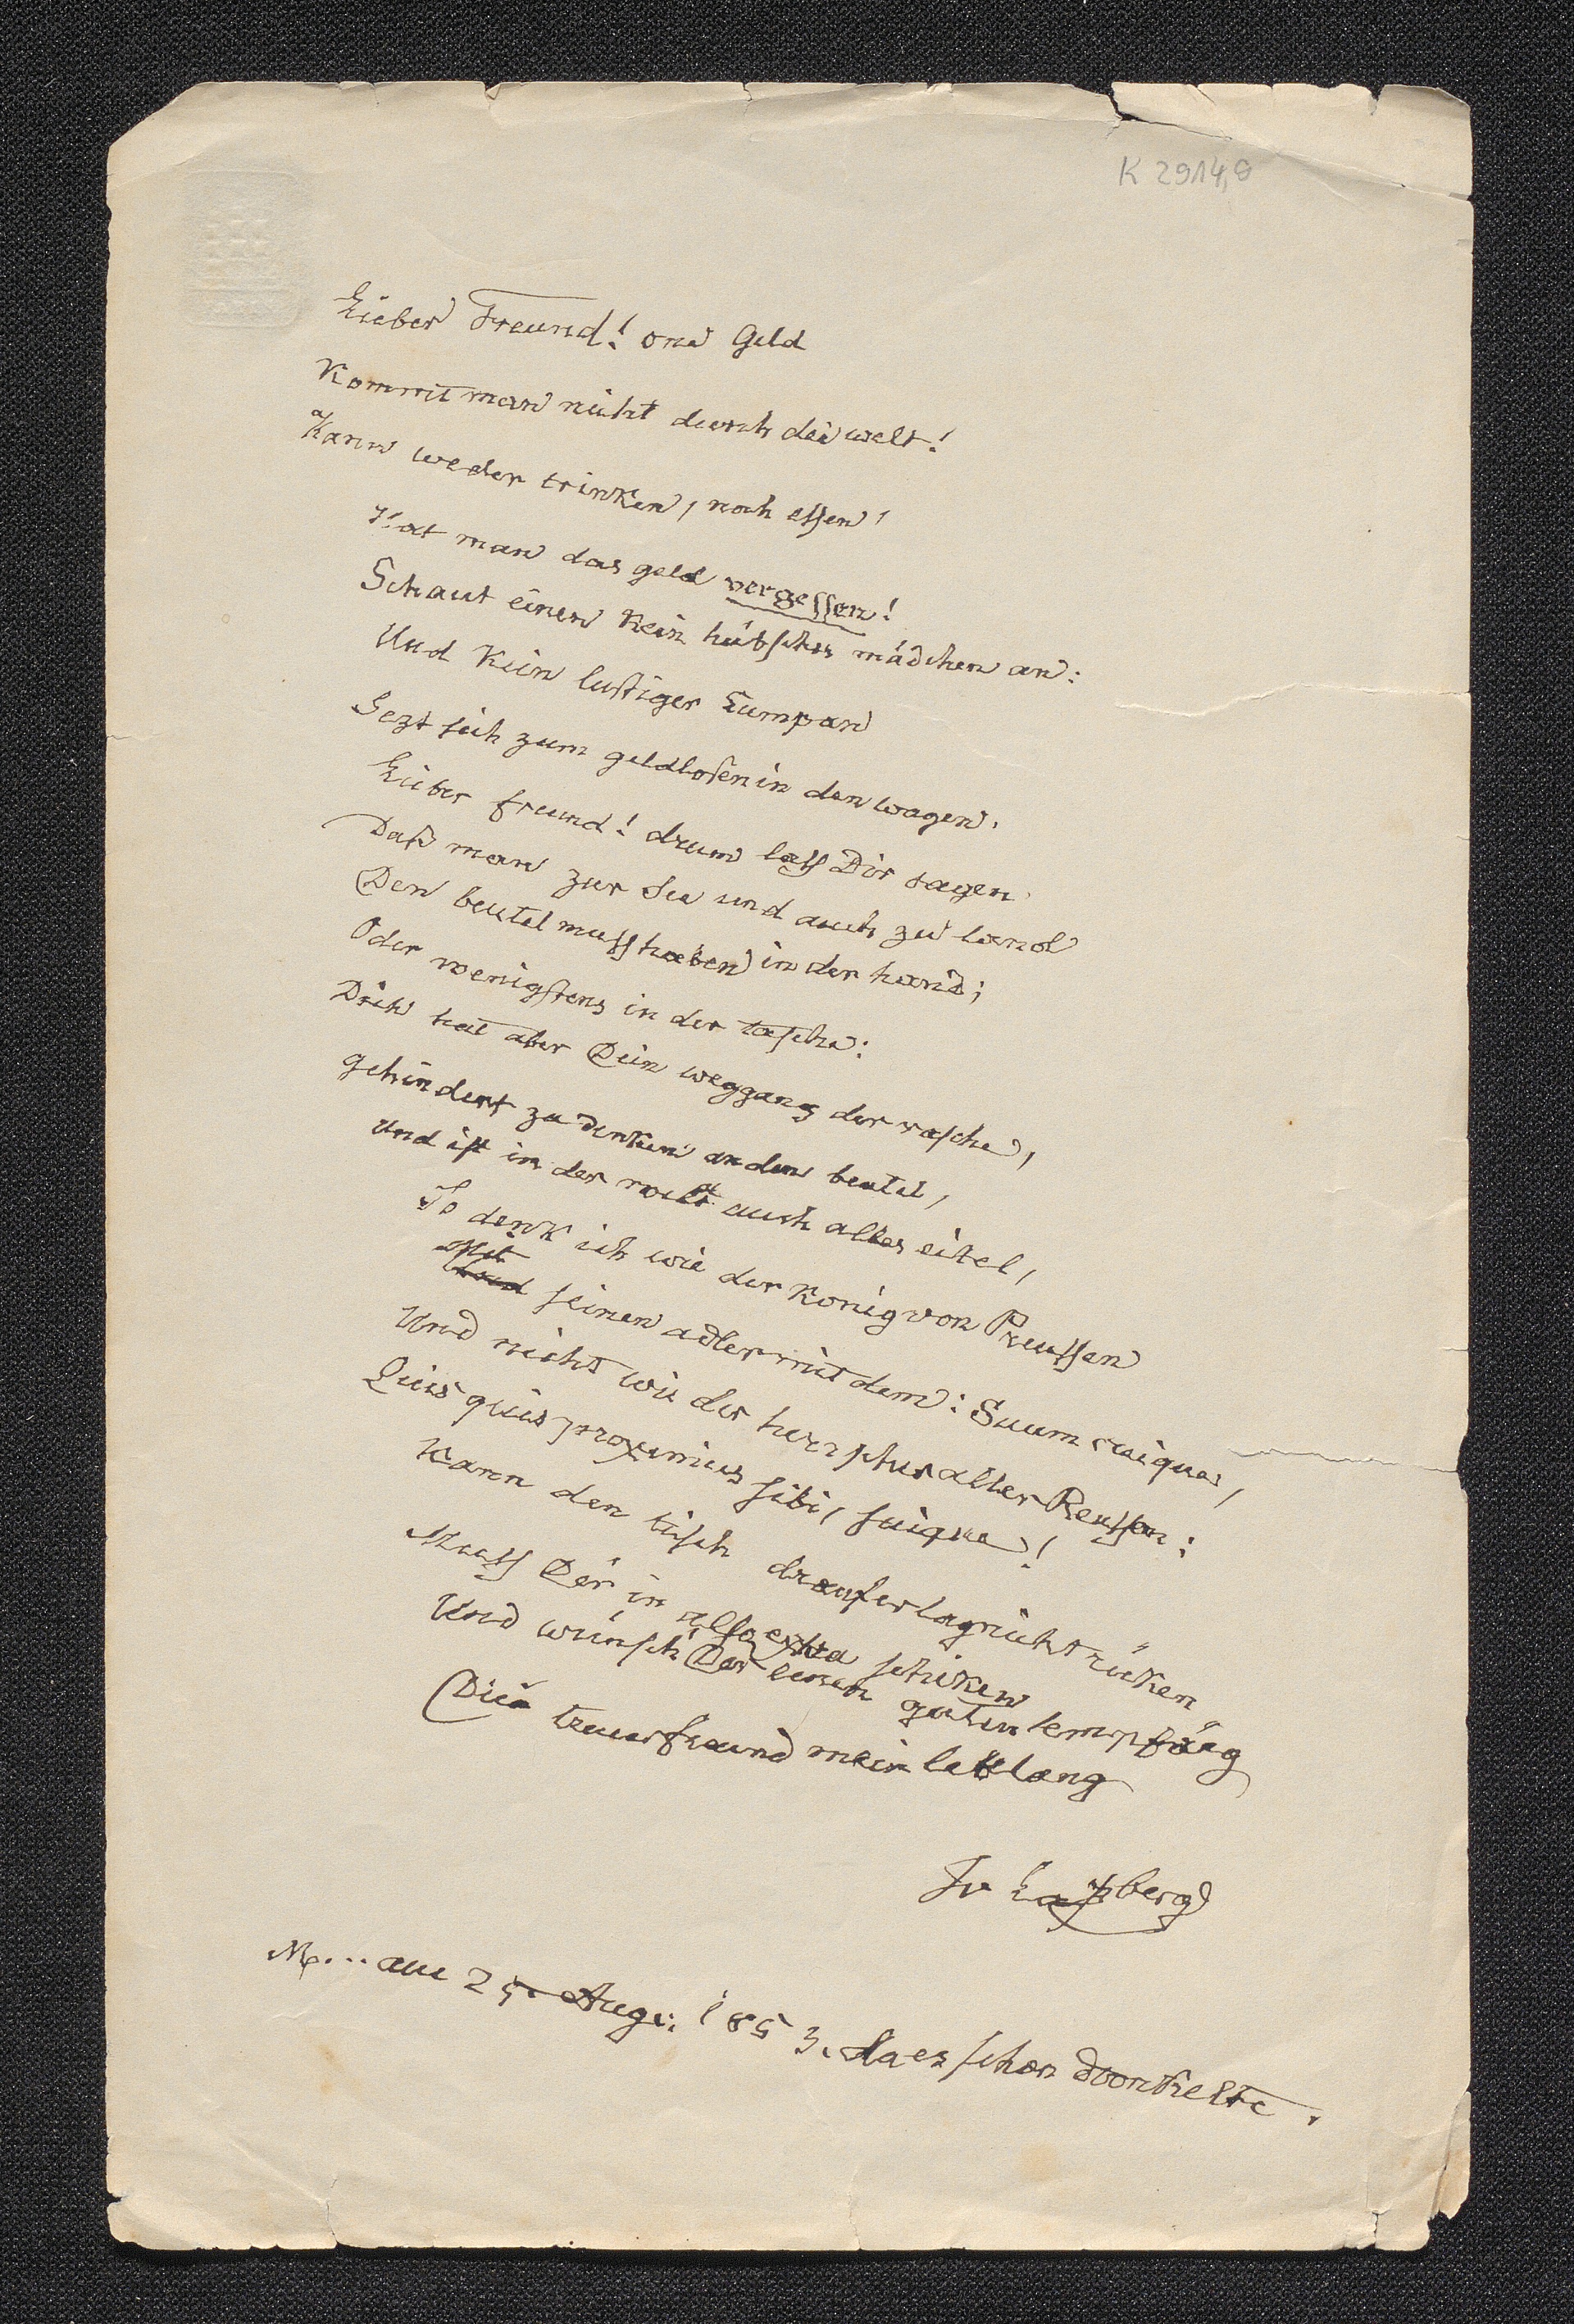 K 2914,8
Lieber Freund! one Geld
Kommt man nicht durch die welt!
Kann weder trinken, noch essen,
Hat man das geld vergessen!
Schaut einen Kein hübsches mädchen an:
Und Kein lustiger Cumpan
Sezt sich zum geldlosen in den wagen.
Lieber freund! drum lass Dir sagen
Daß man zur See und auch zu land
Den beutel muss haben in der hand;
Oder wenigstens in der tasche:
Dich hat aber Dein weggang der rasche,
gehindert zu denken an den beutel,
Und ist in der welt auch alles eitel,
So denk ich wie der König von Preussen
Mit seinen adler mit dem: Suum cuique,
Und nicht wie der herrscher aller Reussen:
Quisquis proximus sibi, suique!
Kann den tisch drauf er lag nicht rücken
Muss Dir in also schicken
Und wünsch Dir einen guten empfang
Die treuer freund mein leblang
Jv Laßberg
M... am 25. Aug: 1853. da es schon donkelte.